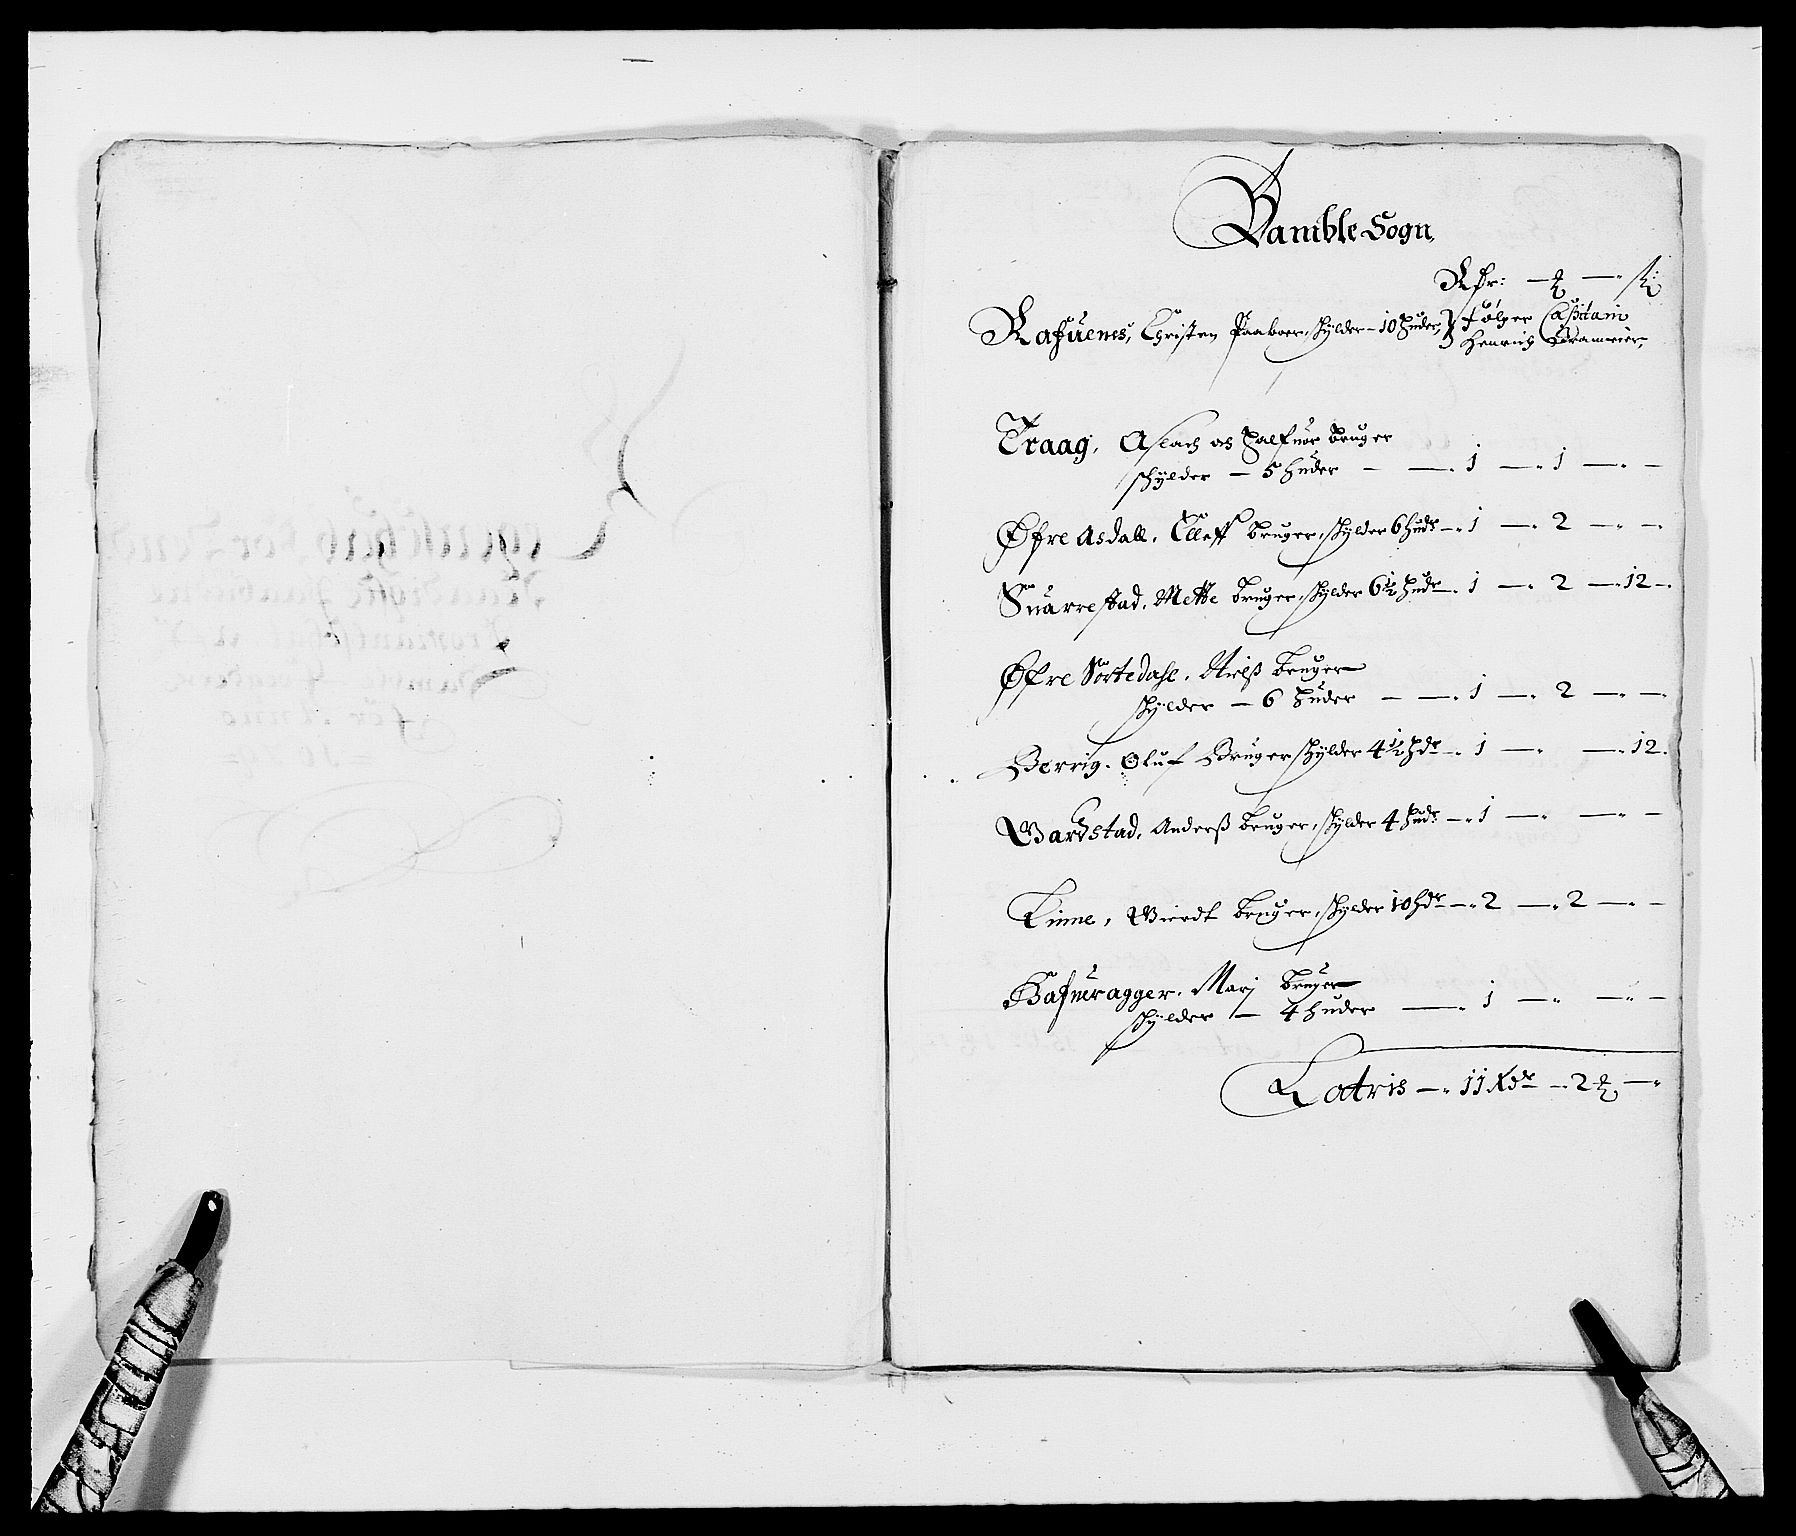 Bamble Sogn,
Rdr: — ₰ — ß
Rafuenes, Christen Paaboer, schylder — 10 huder, følger Capitain
Henrich Brameier,
Traag, Aslach och Halfuor bruger
schylder — 5 huder — — 1 — 1 — —
Øfre Asdall, Elleff bruger, schylder 6 hudr — 1 — 2 — —
Snarrestad, Mette bruger, schylder 6½ hudr — 1 — 2 — 12 —
Øfre Sørtedahl, Nielß bruger
schylder — 6 huder — — 1 — 2 — —
Berrig, Oluf Bruger schylder 4½ hdr — 1 — — 12.
Wardstad, Anderß bruger, schylder 4 hudr — 1 — — —
Finne, Wierdt bruger, schylder 10 hdr — 2 — 2 — —
Bafneragger, Marj bruger
schylder — 4 huder — 1 — — —
Latris — 11 Rdr — 2 ₰ —